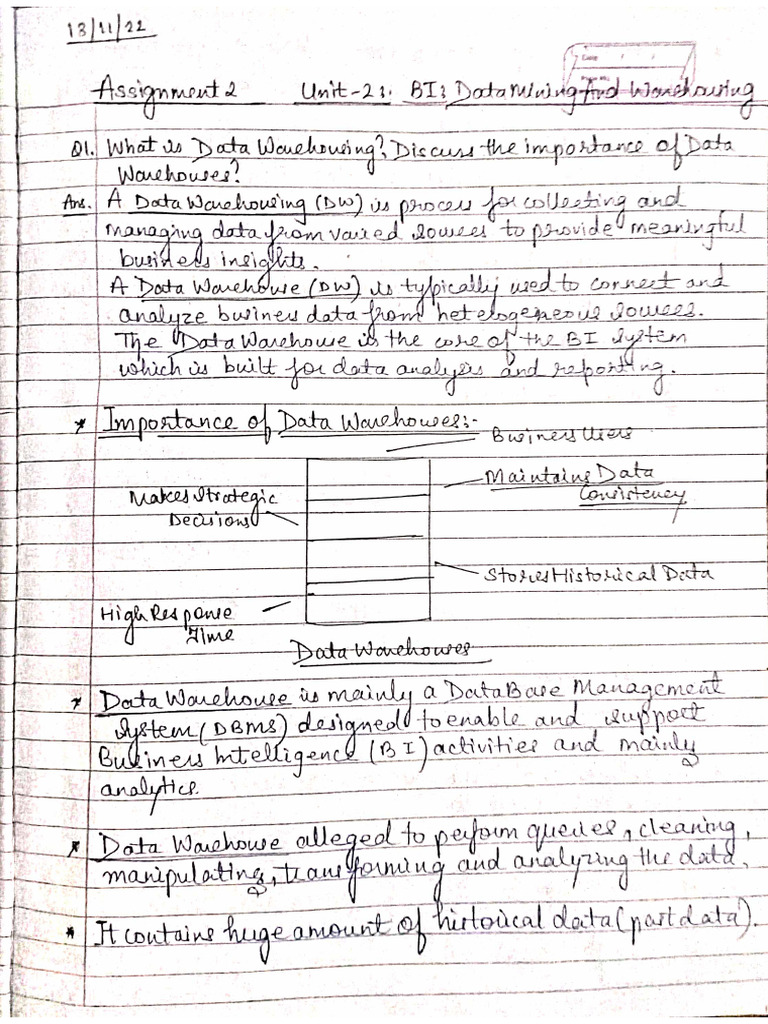 13/11/22
Assignment 2 Unit-2:. BI: Data Mining And Warehousing
Q1. What is Data Warehousing? Discuss the importance of Data
Warehouses?
Ans. A Data Warehousing (DW) is process for collecting and
managing data from varied sources to provide meaningful
business insights.
A Data Warehouse (DW) is typically used to connect and
analyze business data from heterogeneous sources.
The Data Warehouse is the core of the BI system
which is built for data analysis and reporting.
* Importance of Data Warehouses:-
Business Users
Maintains Data
Consistency
Makes Strategic
Decisions
Stores Historical Data
High Response
Time
Data Warehouses
* Data Warehouse is mainly a DataBase Management
System (DBMS) designed to enable and support
Business Intelligence (BI) activities and mainly
analytics.
* Data Warehouse alleged to perform queries, cleaning,
manipulating, transforming and analyzing the data.
* It contains huge amount of historical data (past data).